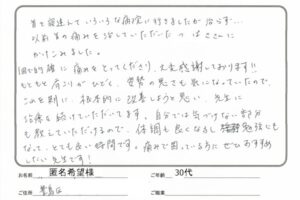 首で寝違えていろいろな病院に行きましたが治らず…
以前首の痛みを治していただいたつばささんに
かけこみました。
1回で的確に痛みをとってくださり、大変感謝しております!!
もともと肩こりがひどく、姿勢の悪さも気になっていたので、
これを期に、根本的に改善しようと思い、先生に
治療を続けていただいてます。自分では気づけない部分
も教えていただけるので、体調も良くなるし勉強にも
なって、とても良い時間です。痛みで困っている方にぜひおすすめ
したい先生です!
お名前 匿名希望様 ご年齢 30代
ご住所 豊島区 ご職業